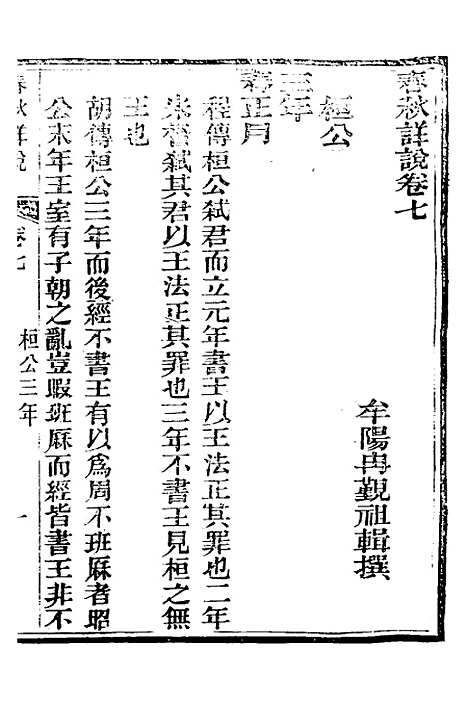 春秋詳說卷七
牟陽冉覲祖輯撰
桓公
三年
春正月
程傳桓公弑君而立元年書王以王法正其罪也二年
宋督弑其君以王法正其罪也三年不書王見桓之無
王也
胡傳桓公三年而後經不書王有以爲周不班厤者昭
公末年王室有子朝之亂豈暇班厤而經皆書王非不
春秋詳說
卷七
桓公三年
一